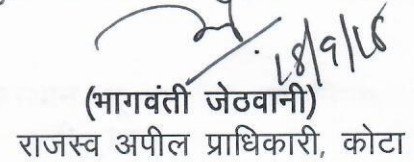 18/9/18
(भागवंती जेठवानी)
राजस्व अपील प्राधिकारी, कोटा